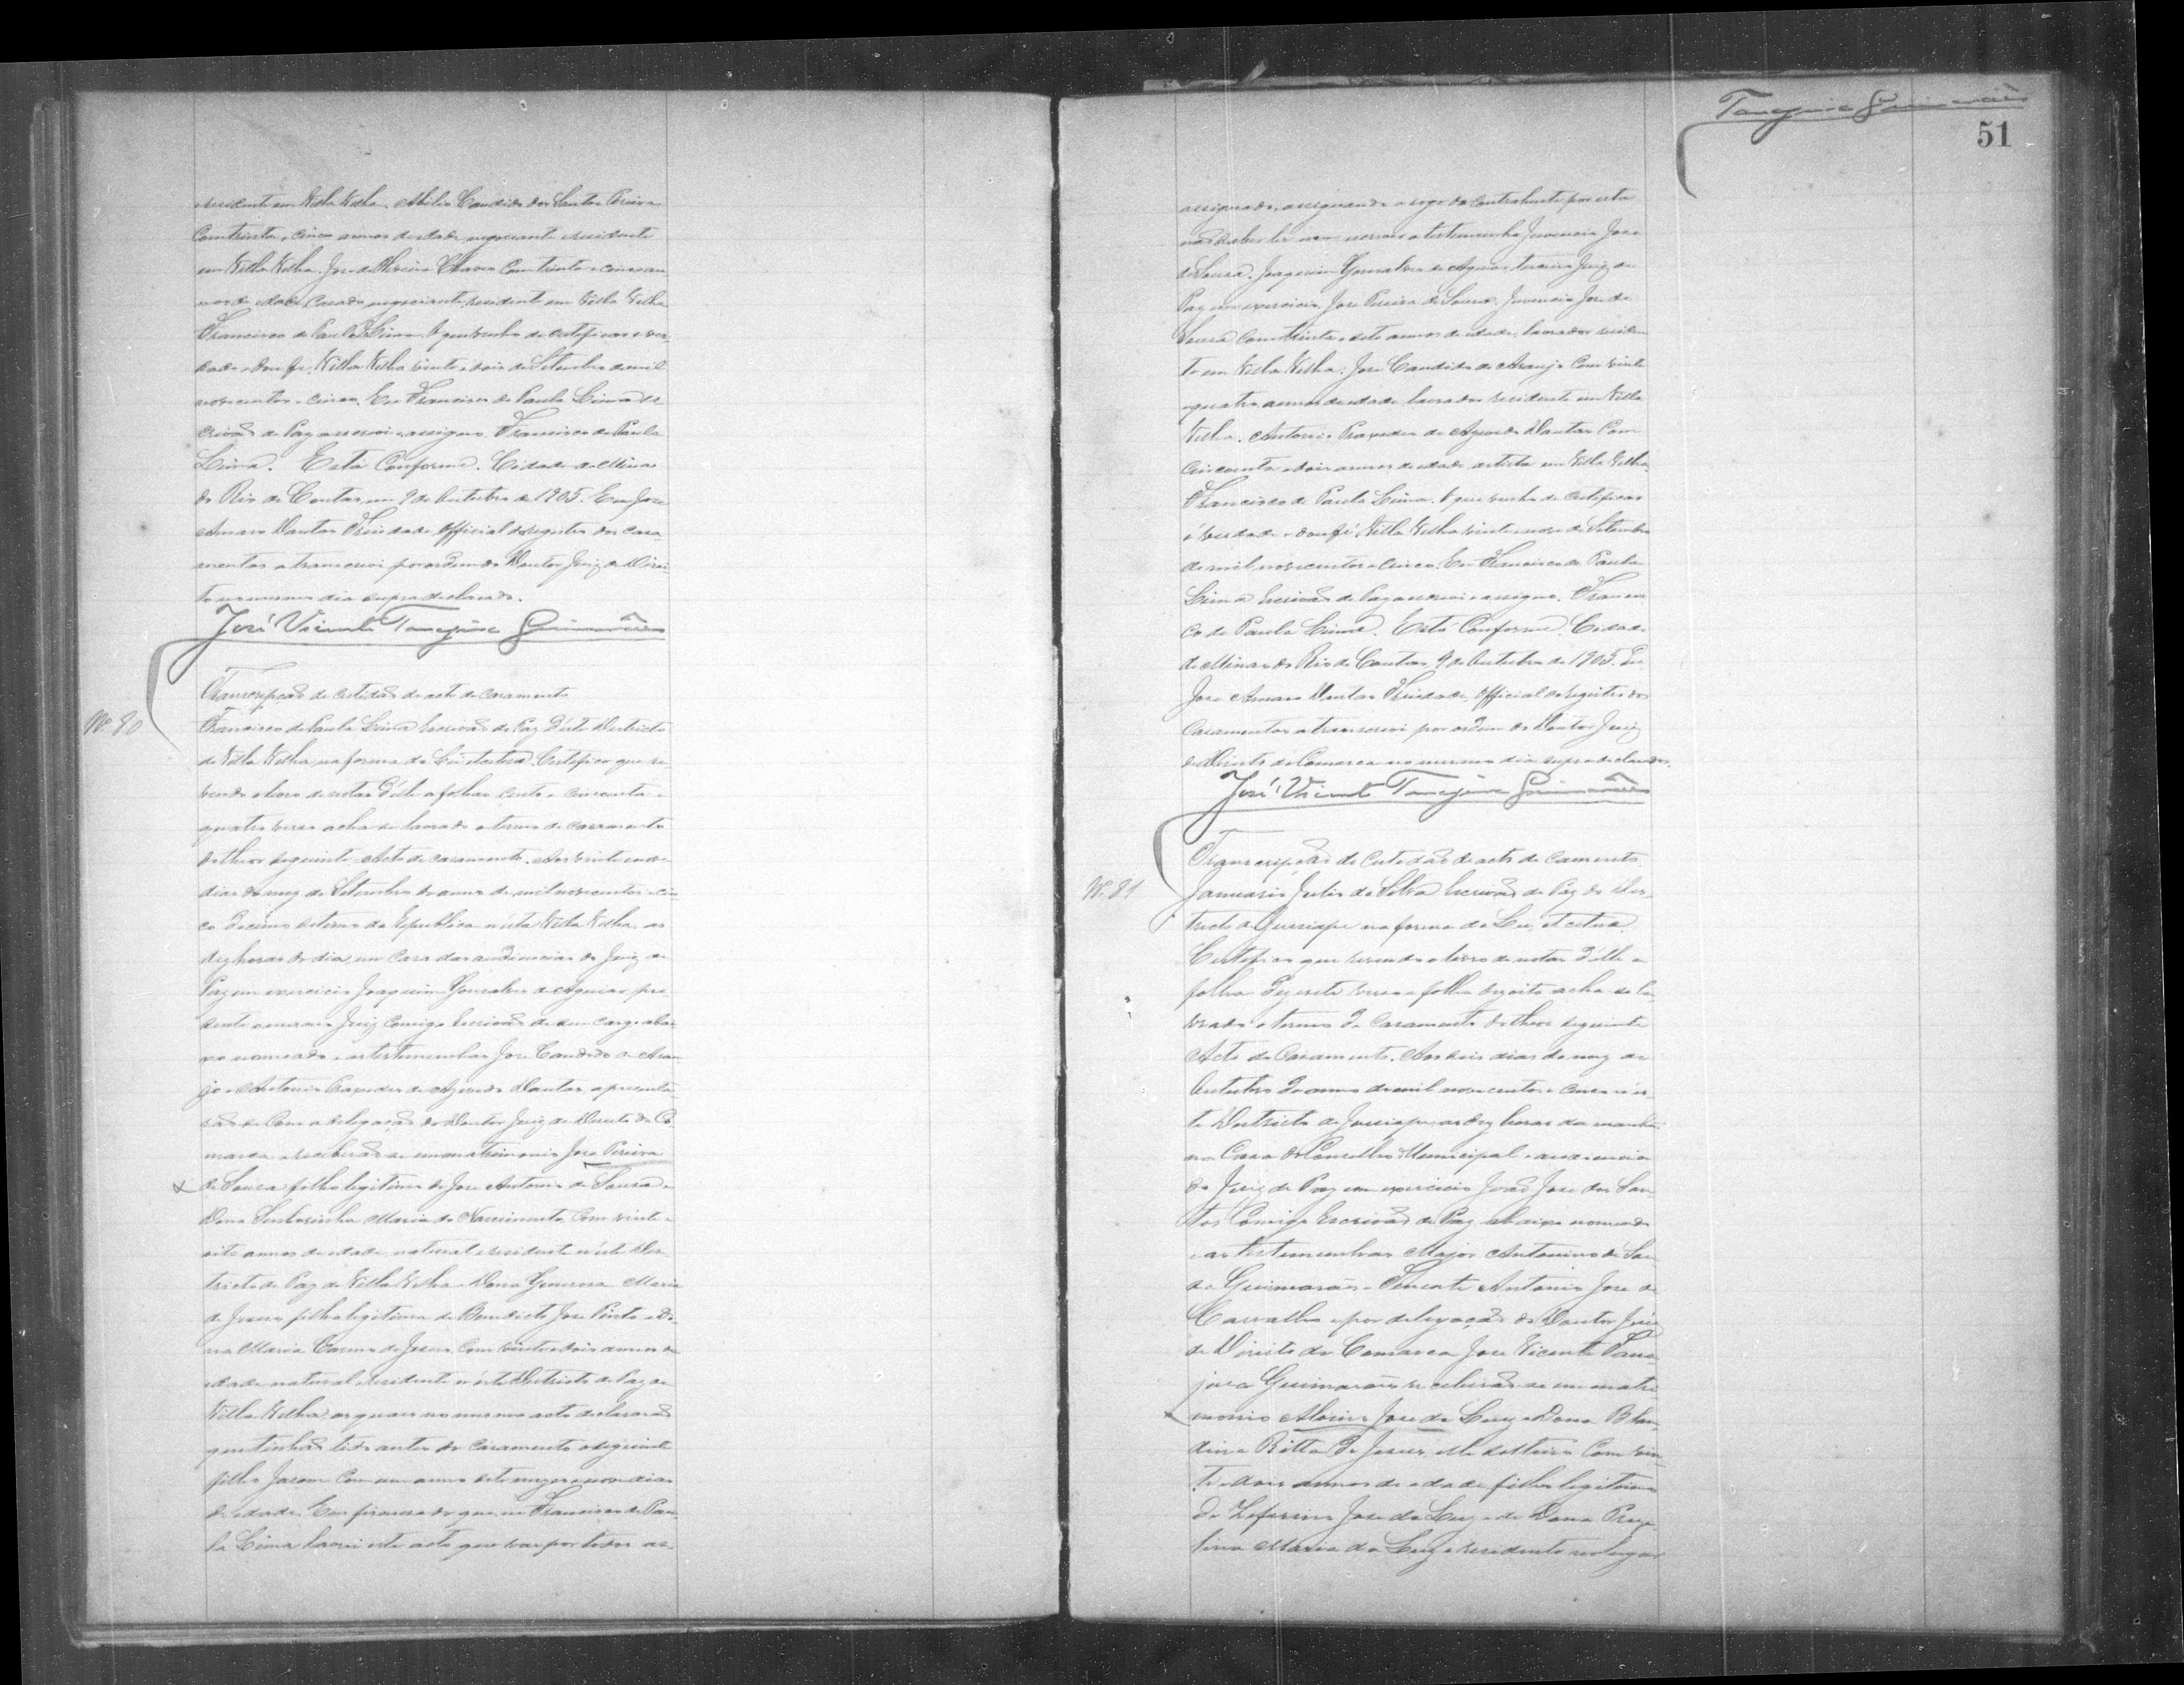 residente em Villa Velha. Abilio Candido dos Santos
Com trinta e cinco annos de idade negociante residente
em Villa Velha. Jose de Oliveira Chaves Com trinta e cinco an
nos de idade Casado negociante, residente em Villa Velha
Francisco de Paula Lima. O que venho de certificar é ver
dade e dou fé. Villa Velha vinte e dois de Setembro de mil
novecentos e cinco. Eu Francisco de Paula Lima es
crivaõ de Paz o escrevi e assigno. Francisco de Paula
Lima. Está Conforme. Cidade de Minas
do Rio de Contas em 9 de Outubro de 1905. Eu Jose
Amaro Dantas Trindade Official do registro dos casa
mentos a transcrevi por ordem do Doutor Juiz de Direi
to no mesmo dia supra declarado.
José Vicente Tanajura Guimarães
Transcripçaõ de certidaõ de acto de casamento
Nº 80
Francisco de Paula Lima Escrivaõ de Paz d'este Districto
de Villa Velha, na forma da Lei etcetra. Certifico que re
vendo o livro de notas d'elle a folhas cento e cincoenta e
quatro verso acha-se lavrado o termo de casamento
do theor seguinte. Acto de casamento. Aos vinte e nove
dias do mez de Setembro do anno de mil novecentos e cin
co decimo setimo da Republica n'esta Villa Velha, as
dez horas do dia, em Casa das audiencias do Juiz de
Paz em exercicio Joaquim Gonsalves de Aguiar, pre
sente o mesmo Juiz Comigo Escrivaõ de seu cargo abai
xo nomeado e as testemunhas Jose Candido de Arau
jo e Antonio Praxedes de Azevedo Dantas, apresenta
raõ-se Com a delegaçaõ do Doutor Juiz de Direito da Co
marca e receberaõ-se em matrimonio Jose Pereira
de Sousa filho legitimo de Jose Antonio de Sousa e
Dona Senhorinha Maria do Nascimento, Com vinte e
oito annos de idade, natural e residente n'este Dis
tricto de Paz de Villa Velha e Dona Generosa Maria
de Jesus, filha legitima de Benedicto Jose Pinto e Do
na Maria Carma de Jesus, Com vinte e dois annos de
idade natural e residente n'este Districto de Paz de
Villa Velha; os quaes no mesmo acto declararaõ
que tinhaõ tido antes do casamento o seguinte
filho Com um anno sete mezes e nove dias
de idade. Em firmesa do que, eu Francisco de Pau
la Lima lavrei este acto que vae por todos as-
Tanajura Guimarães
51
assignado, assignando a rogo da Contrahente por esta
naõ saber ler nem escrever a testemunha Juvencio Jose
de Sousa. Joaquim Gonsalves de Aguiar, terceiro Juiz de
Paz em exercicio. Jose Pereira de Sousa. Juvencio Jose de
Sousa Com trinta e sete annos de idade, lavrador residen
te em Villa Velha. Jose Candido de Araujo Com vinte
e quatro annos de idade lavrador residente em Villa
Velha. Antonio Praxedes de Azevedo Dantas Com
Cincoenta e dois annos de idade artista em Villa Velha.
Francisco de Paula Lima. O que venho de certificar
é verdade e dou fé Villa Velha vinte e nove de Setembro
de mil novecentos e cinco. Eu Francisco de Paula
Lima Escrivaõ de Paz o escrevi e assigno. Francis
co de Paula Lima. Está Conforme. Cidade
de Minas do Rio de Contas, 9 de Outubro de 1905. Eu
Jose Amaro Dantas Trindade, Official do registro dos
Casamentos a transcrevi por ordem do Doutor Juiz
de Direito da Comarca no mesmo dia supra declarado.
José Vicente Tanajura Guimarães
Transcripçaõ de Certidaõ de acto de Camento
Nº 81
Januario Julio da Silva Escrivaõ de Paz do Dis
tricto de Jussiape na forma da Lei, et cetera.
Certifico que revendo o livro de notas d'elle a
folha dezesete verso e folha dezoito acha-se la
vrado o termo de Casamento do theor seguinte
Acto de Casamento. Aos seis dias do mez de
Outubro do anno de mil novecentos e cinco n'es
te Districto de Jussiape, as dez horas da manhã
na Casa do Conselho Municipal e audiencia
do Juiz de Paz em exercicio Joaõ Jose dos San
tos Comigo Escrivaõ de Paz abaixo nomeado
e as testemunhas Major Antonino de Sou
sa Guimarães e Tenente Antonio Jose de
Carvalho e por delegaçaõ do Doutor Juiz
de Direito da Comarca Jose Vicente Tana
jura Guimarães receberaõ-se em matri
monio Jose da Luz e Dona Blan
dina Ritta de Jesus, elle solteiro Com vin
te e dois annos de idade filho legitimo
de Zeferino Jose da Luz e de Dona
Maria da Luz e residente no lugar